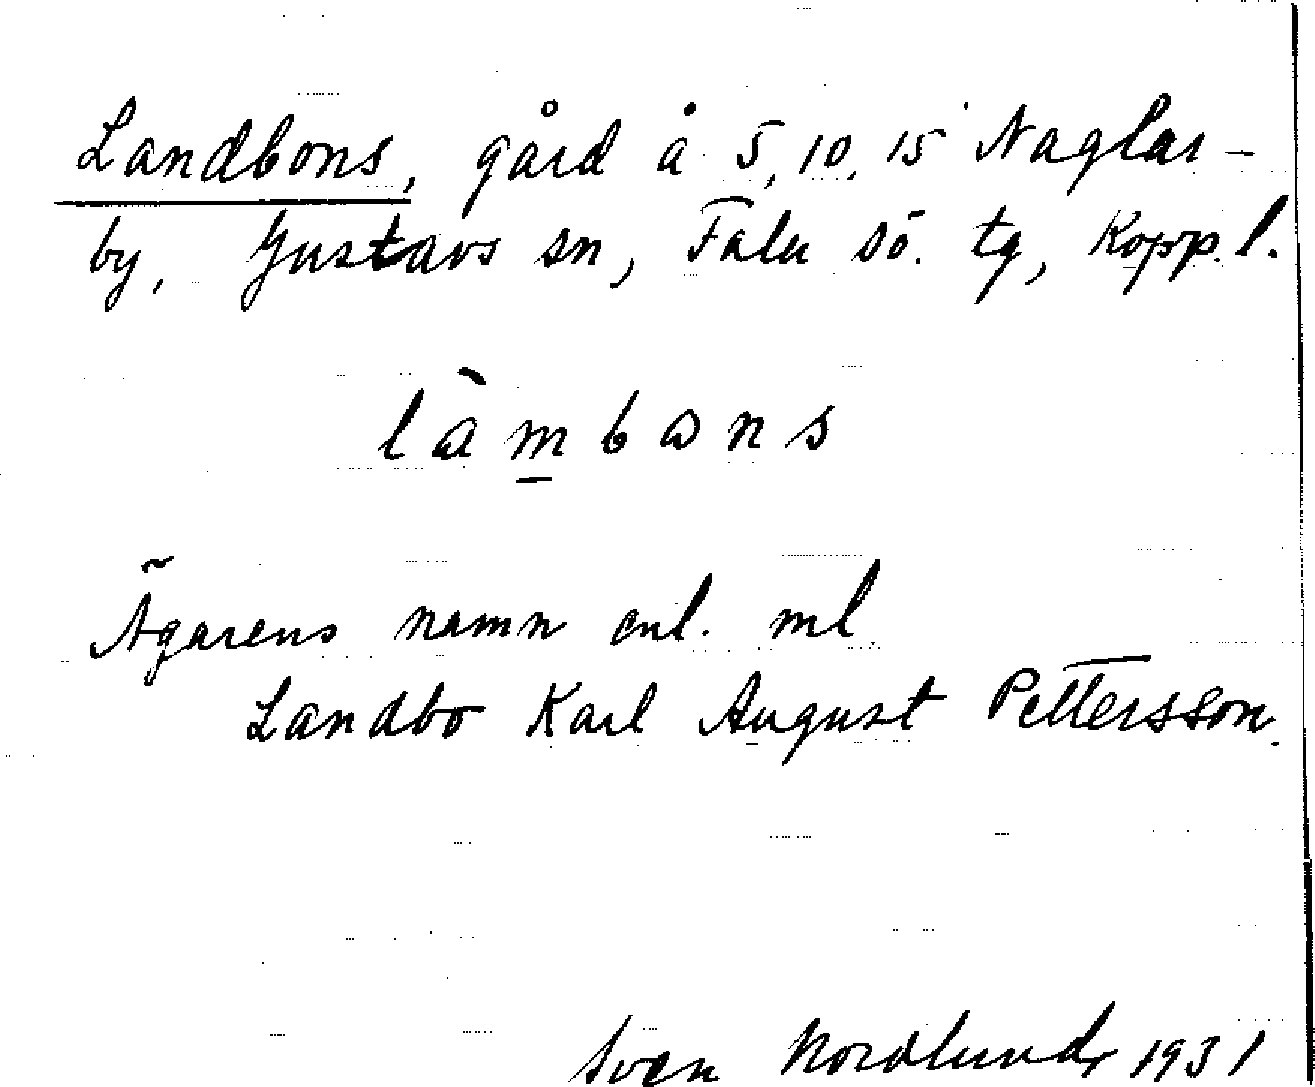 Landbons, gård å 5, 10, 15 Naglar-
by, Gustavs sn, Falu sö. tg, Kopp. l.
làm̲bɷns
Ägarens namn enl. ml
Landbo Karl August Pettersson.
Sven Nordlund, 1931